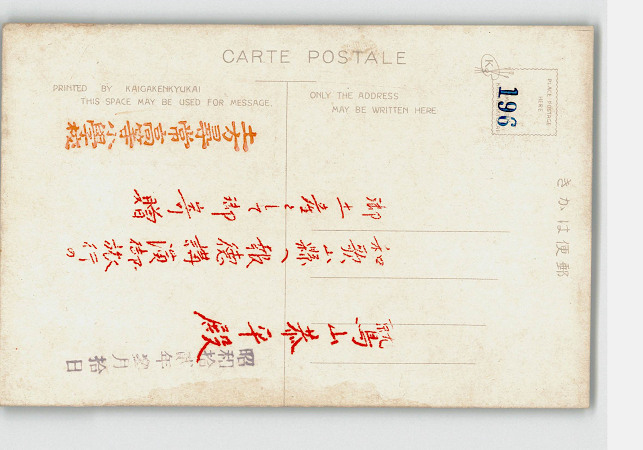 CARTE POSTALE
PRINTED BY KAIGAKENKYUKAI
THIS SPACE MAY BE USED FOR MESSAGE.
ONLY THE ADDRESS
MAY BE WRITTEN HERE
PLACE POSTAGE
HERE
196
きかは便郵
土方尋常高等小學校
御土産として御寄贈
和歌山縣へ報徳講演御旅行の
鷲山恭平殿
昭和拾貳年 月拾日